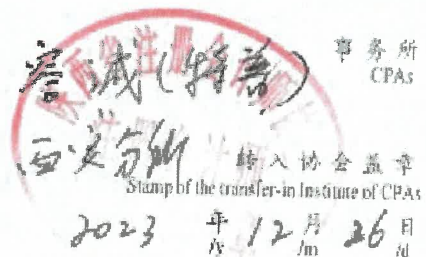 容诚(特普) 事务所
CPAs
西安分所 转入协会盖章
Stamp of the transfer-in Institute of CPAs
2023 年 12 月 26 日
/y /m /d